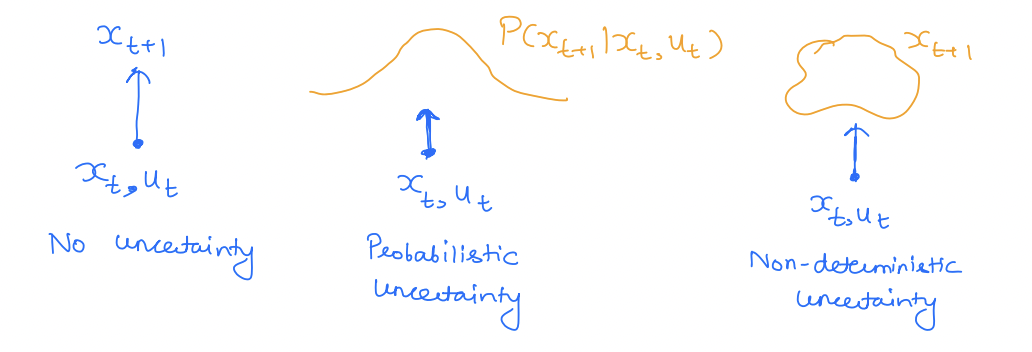 x_{t+1}
x_t, u_t
No uncertainty
P(x_{t+1}|x_t, u_t)
x_t, u_t
Probabilistic
uncertainty
x_{t+1}
x_t, u_t
Non-deterministic
uncertainty